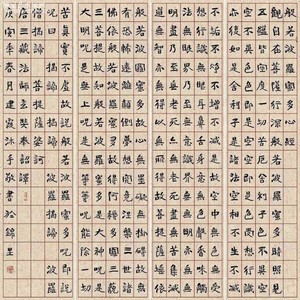 般若波羅蜜多心經
觀自在菩薩行深般若波羅蜜多時照見
五蘊皆空度一切苦厄舍利子色不異空
空不異色色即是空空即是色受想行識
亦復如是舍利子是諸法空相不生不滅
不垢不淨不增不減是故空中無色無受
想行識無眼耳鼻舌身意無色聲香味觸
法無眼界乃至無意識界無無明亦無無
明盡乃至無老死亦無老死盡無苦集滅
道無智亦無得以無所得故菩提薩埵依
般若波羅蜜多故心無罣礙無罣礙故無
有恐怖遠離顛倒夢想究竟涅槃三世諸
佛依般若波羅蜜多故得阿耨多羅三藐
三菩提故知般若波羅蜜多是大神呪是
大明呪是無上呪是無等等呪能除一切
苦真實不虛故說般若波羅蜜多呪即說
呪曰 揭諦揭諦 波羅揭諦 波羅
僧揭諦 菩提薩婆訶
唐三藏法師玄奘譯
季春月建 敬書於錦